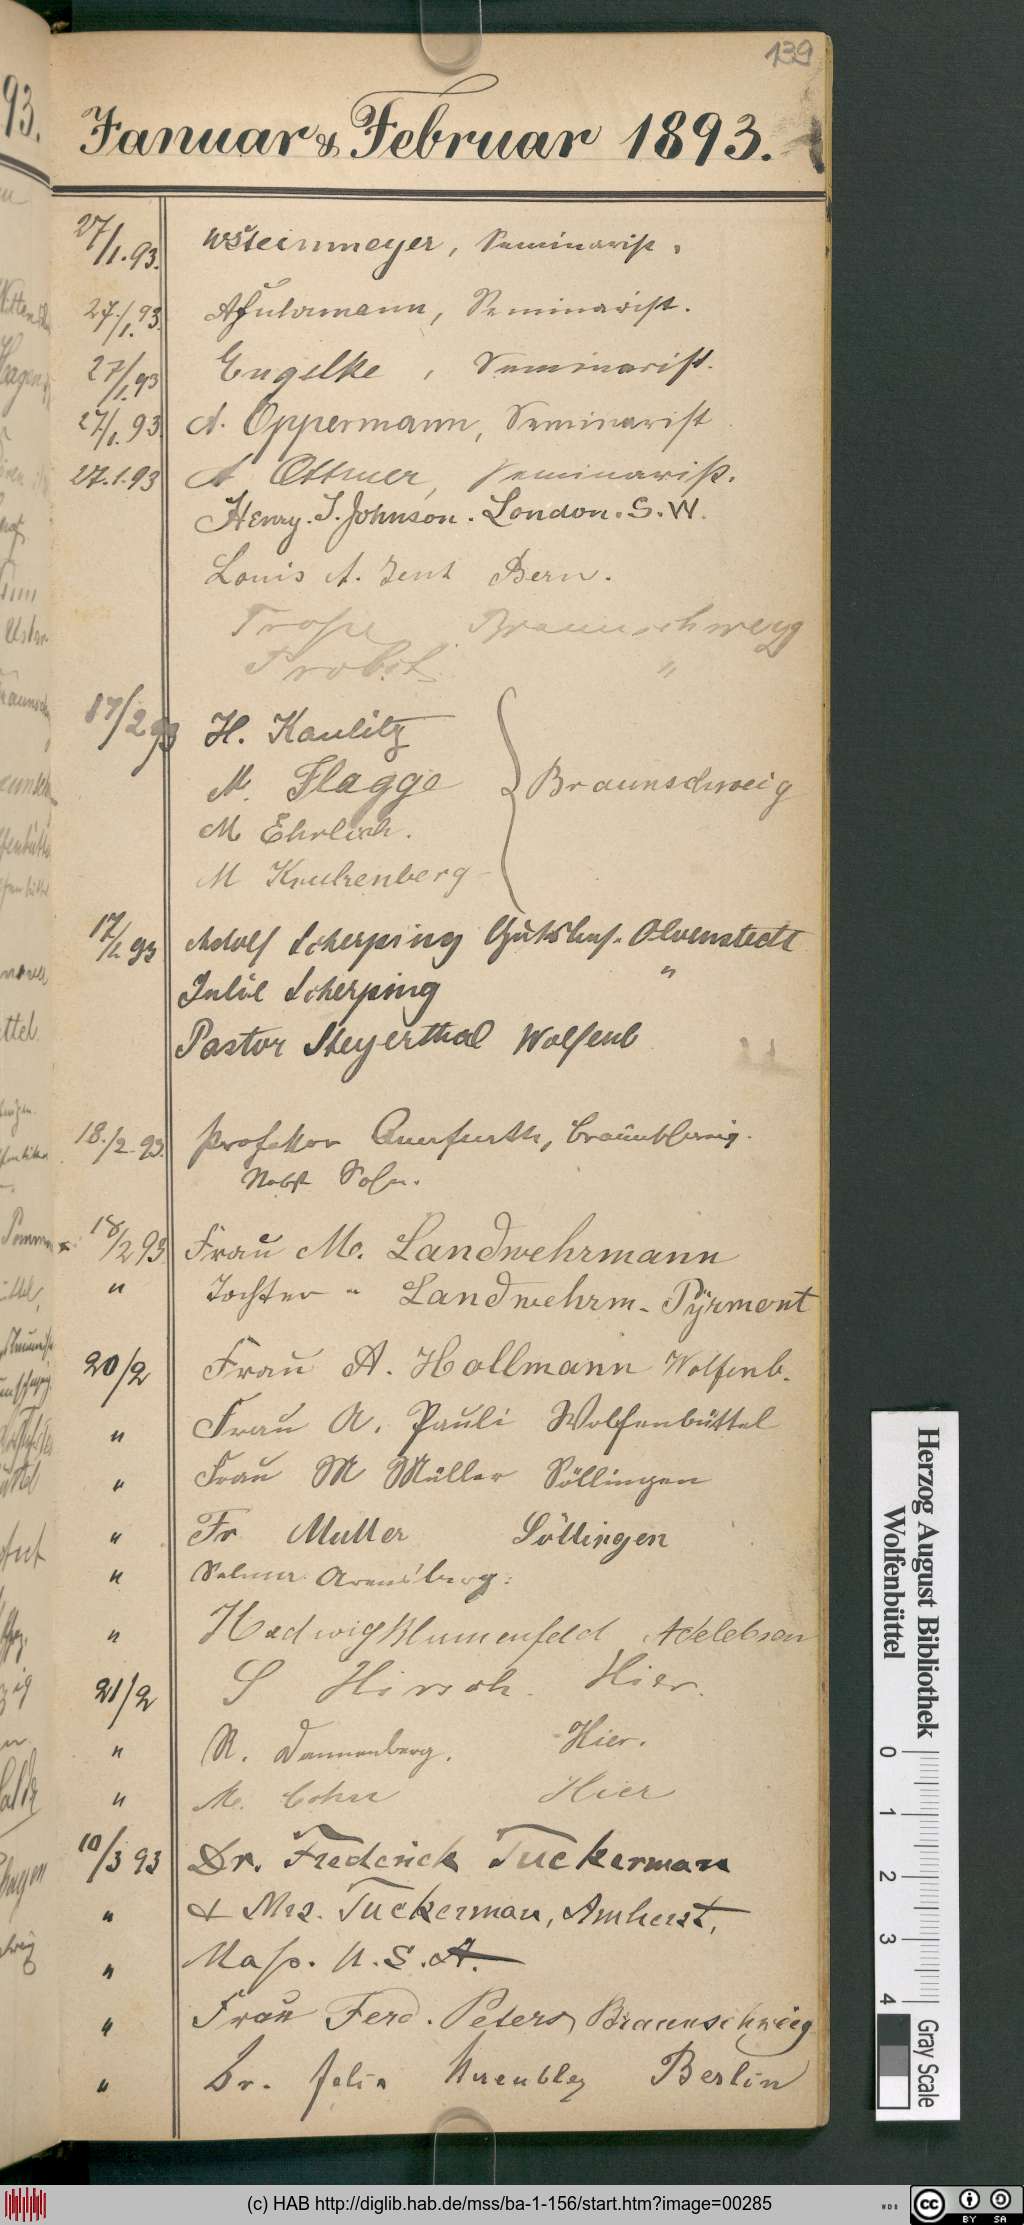 139
Januar & Februar 1893.
27/1.93. W Steinmeyer, Seminarist.
27./1.93. A Fuhrmann, Seminarist.
27/1.93 Engelke, Seminarist.
27/1.93. A. Oppermann, Seminarist
27.1.93 A Ottmer, Seminarist.
Henry. J. Johnson. London. S. W.
Louis A. Zent Bern.
Braunschweig
Probst "
17/2 93 H. Kaulitz
M. Flagge } Braunschweig
M Ehrlich.
M Krukenberg
17/2 93 Adolf Scherping Olvenstedt
Julie Scherping "
Pastor Steyerthal Wolfenb
18./2.93. Professor Querfurth, Braunschweig.
Nebst Sohn.
18/2 93 Frau M. Landwehrmann
" Tochter " Landwehrm. Pyrmont
20/2 Frau A. Hollmann Wolfenb.
" Frau A. Pauli Wolfenbüttel
" Frau M Müller Söllingen
" Fr Muller Söllingen
" Selma Arensberg.
" Hedwig Blumenfeld Adelebsen
21/2 S Hirsch. Hier.
" R. Dannenberg. Hier.
" M. Cohn Hier
10/3 93 Dr. Frederick Tuckerman
" & Mrs. Tuckerman, Amherst,
" Mass. U.S.A.
" Frau Ferd. Peters, Braunschweig
" Dr. Berlin
Herzog August Bibliothek
Wolfenbüttel
0 1 2 3 4
Gray Scale
(c) HAB http://diglib.hab.de/mss/ba-1-156/start.htm?image=00285
WDB
cc BY SA